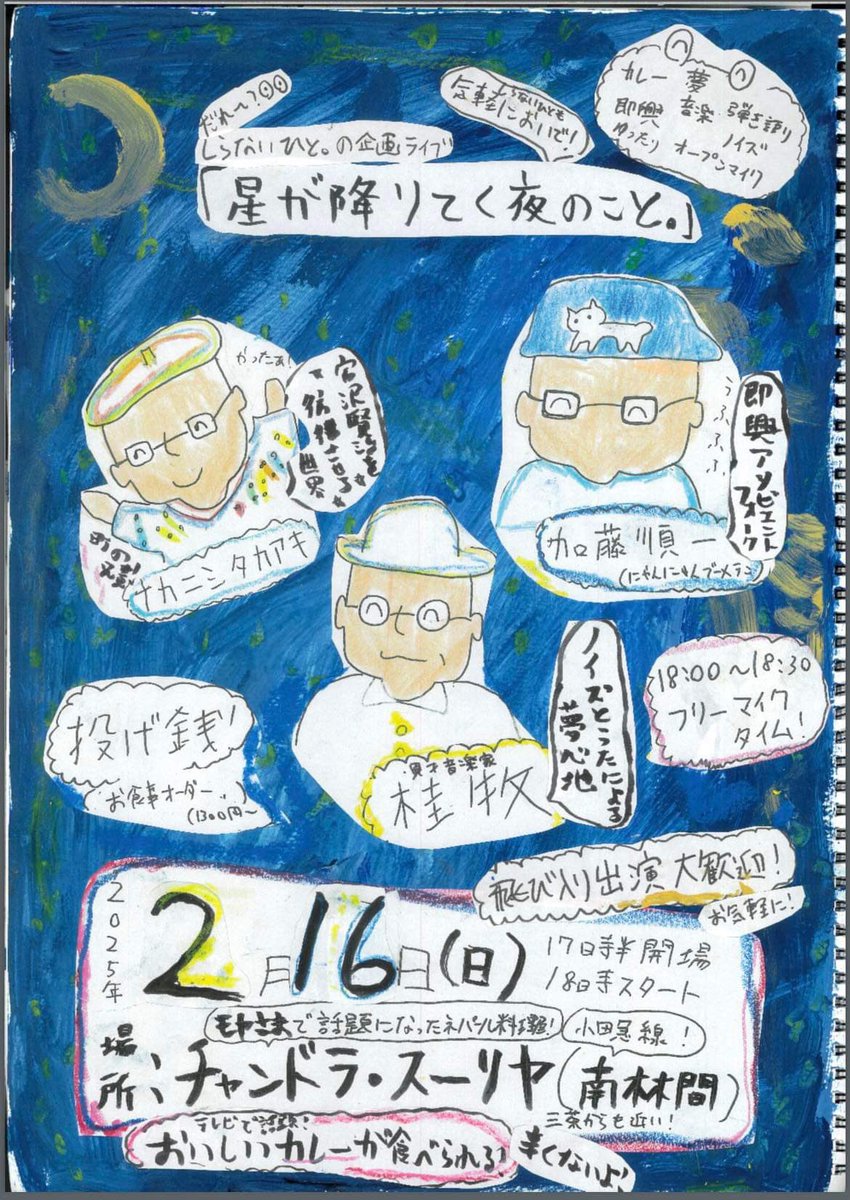 だれ〜?
しらないひと。の企画ライブ
しらないひとも
気軽においで!
カレー 夢
即興 音楽 弾き語り
ゆったり ノイズ
オープンマイク
「星が降りてく夜のこと。」
やったぁ!
宮沢賢治を
彷彿させる
世界
町の
ナカニシタカアキ
うふふふ
即興アンビエント
フォーク
加藤順一
(にゃんにゃんブーメラン)
ノイズとうたによる
夢心地
異才音楽家
桂牧
18:00〜18:30
フリーマイク
タイム!
投げ銭!
お食事オーダー
(1300円〜
飛び入り出演大歓迎!
お気軽に!
2025年
2月16日(日)
17時半開場
18時スタート
モヤさまで話題になったネパール料理屋!
小田急線!
場所、チャンドラ・スーリヤ(南林間)
三茶からも近い!
テレビで話題!
おいしいカレーが食べられる!
辛くないよ!